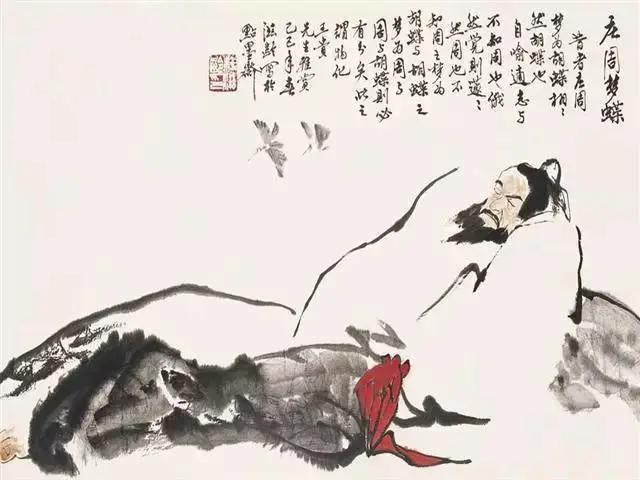 庄周梦蝶
昔者庄周
梦为胡蝶栩〻
然胡蝶也
自喻適志与
不知周也俄
然觉则蘧〻
然周也不
知周之梦为
胡蝶与胡蝶之
梦为周与
周与胡蝶则必
有分矣此之
谓物化
先生雅赏
己巳年春
写於
點墨斋